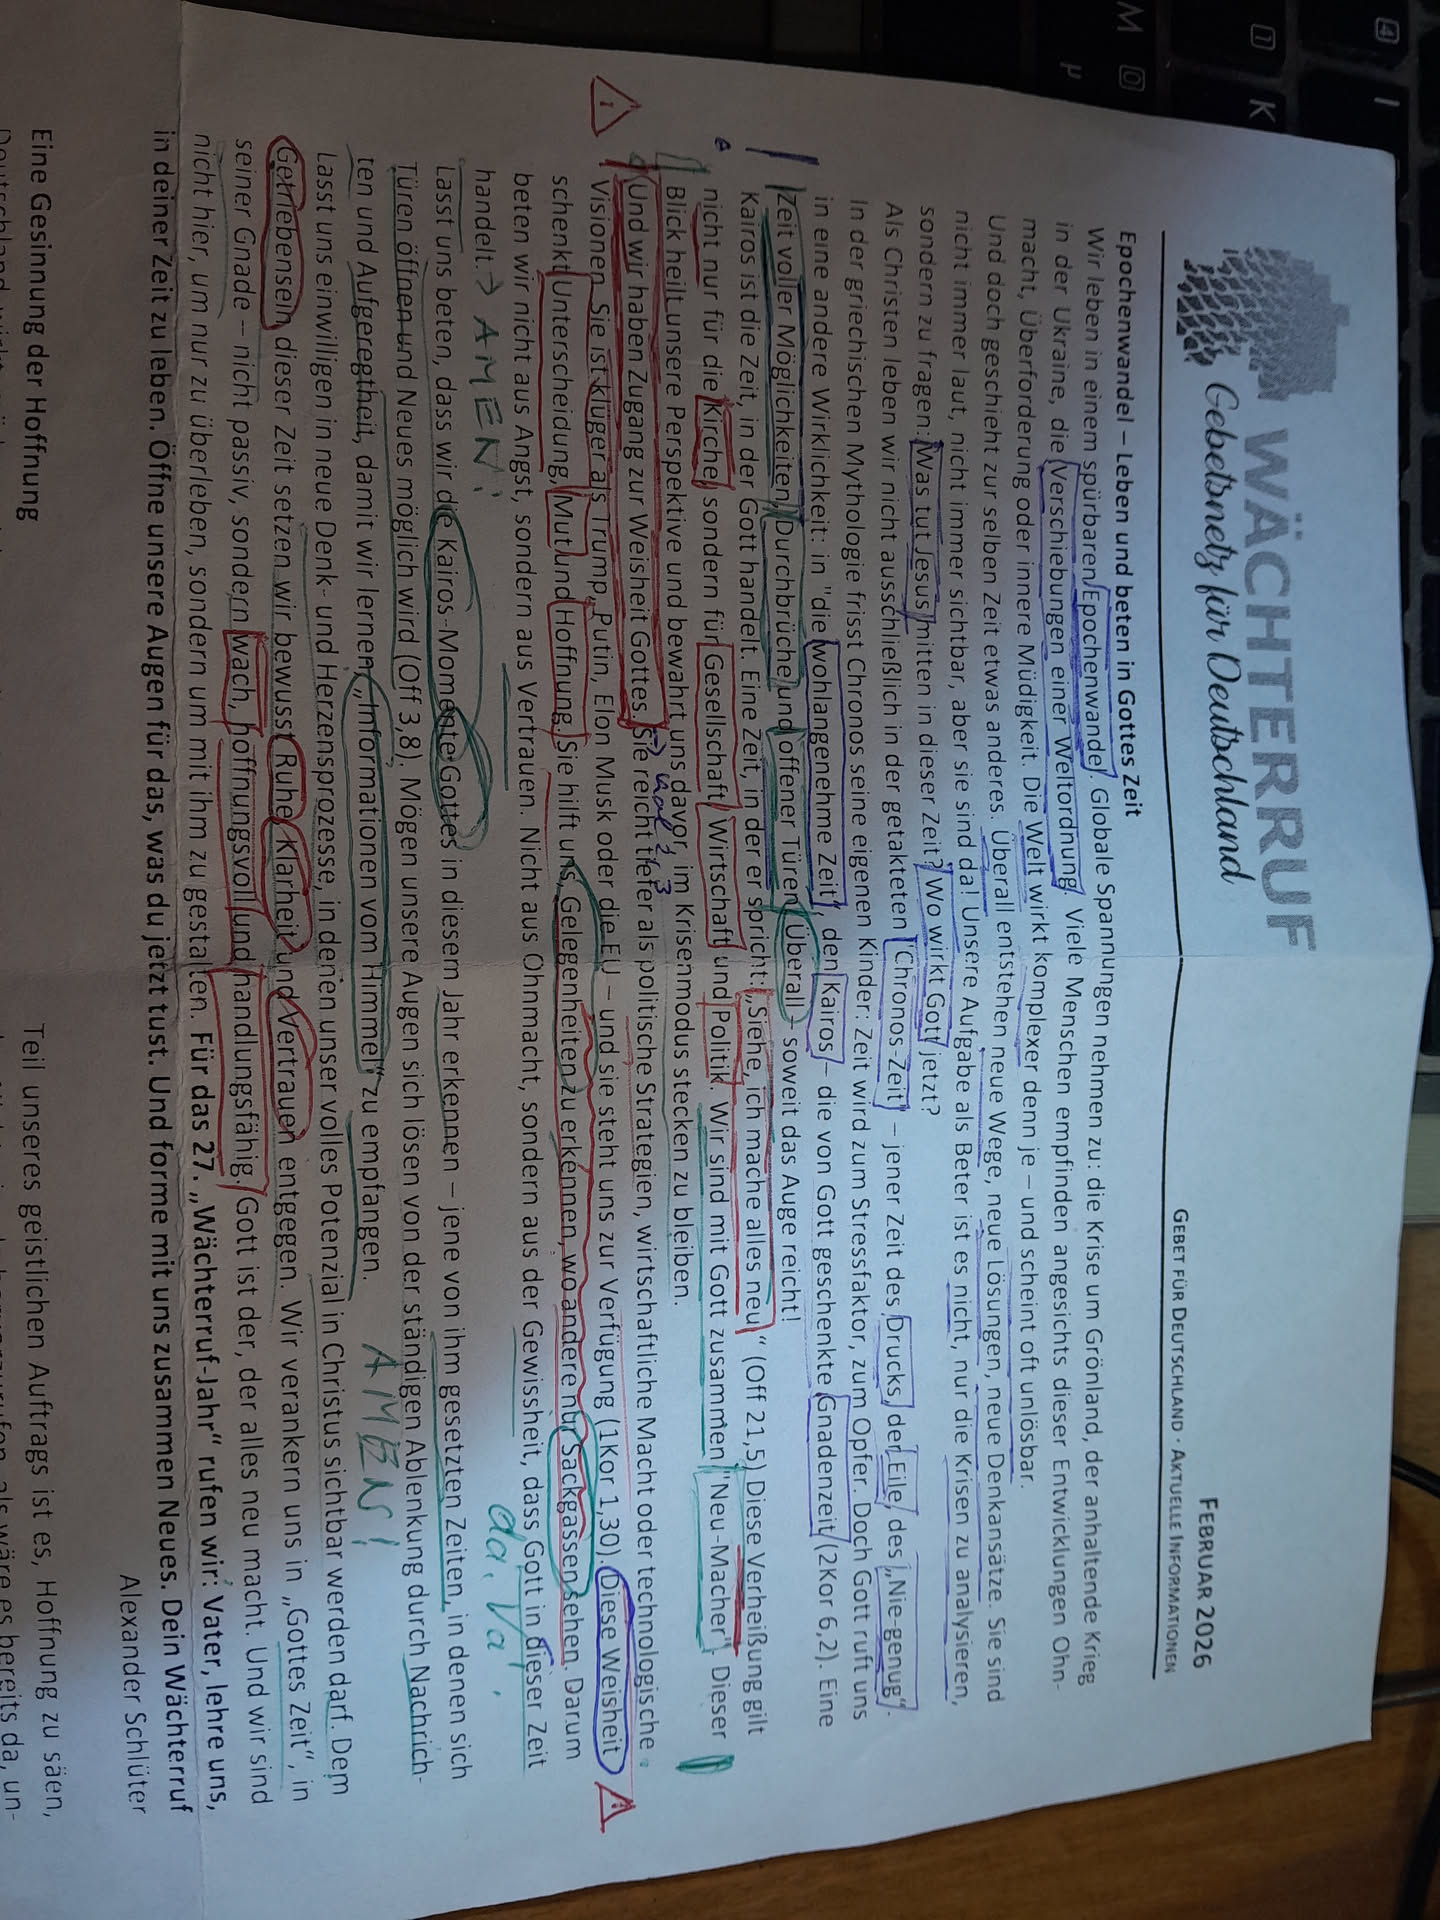 WÄCHTERRUF
Gebetsnetz für Deutschland
FEBRUAR 2026
GEBET FÜR DEUTSCHLAND · AKTUELLE INFORMATIONEN
Epochenwandel – Leben und beten in Gottes Zeit
Wir leben in einem spürbaren Epochenwandel. Globale Spannungen nehmen zu: die Krise um Grönland, der anhaltende Krieg
in der Ukraine, die Verschiebungen einer Weltordnung. Viele Menschen empfinden angesichts dieser Entwicklungen Ohn-
macht, Überforderung oder innere Müdigkeit. Die Welt wirkt komplexer denn je – und scheint oft unlösbar.
Und doch geschieht zur selben Zeit etwas anderes. Überall entstehen neue Wege, neue Lösungen, neue Denkansätze. Sie sind
nicht immer laut, nicht immer sichtbar, aber sie sind da! Unsere Aufgabe als Beter ist es nicht, nur die Krisen zu analysieren,
sondern zu fragen: Was tut Jesus mitten in dieser Zeit? Wo wirkt Gott jetzt?
Als Christen leben wir nicht ausschließlich in der getakteten "Chronos-Zeit" – jener Zeit des Drucks, der Eile, des „Nie-genug“.
In der griechischen Mythologie frisst Chronos seine eigenen Kinder: Zeit wird zum Stressfaktor, zum Opfer. Doch Gott ruft uns
in eine andere Wirklichkeit: in "die wohlangenehme Zeit", den Kairos – die von Gott geschenkte Gnadenzeit (2Kor 6,2). Eine
Zeit voller Möglichkeiten, Durchbrüche und offener Türen. Überall – soweit das Auge reicht!
Kairos ist die Zeit, in der Gott handelt. Eine Zeit, in der er spricht: „Siehe, ich mache alles neu“ (Off 21,5) Diese Verheißung gilt
nicht nur für die Kirche, sondern für Gesellschaft, Wirtschaft und Politik. Wir sind mit Gott zusammen "Neu-Macher". Dieser
Blick heilt unsere Perspektive und bewahrt uns davor, im Krisenmodus stecken zu bleiben.
Und wir haben Zugang zur Weisheit Gottes. Sie reicht tiefer als politische Strategien, wirtschaftliche Macht oder technologische
Visionen. Sie ist klüger als Trump, Putin, Elon Musk oder die EU – und sie steht uns zur Verfügung (1Kor 1,30). Diese Weisheit
schenkt Unterscheidung, Mut und Hoffnung. Sie hilft uns, Gelegenheiten zu erkennen, wo andere nur Sackgassen sehen. Darum
beten wir nicht aus Angst, sondern aus Vertrauen. Nicht aus Ohnmacht, sondern aus der Gewissheit, dass Gott in dieser Zeit
handelt. → AMEN! da, Va',
Lasst uns beten, dass wir die Kairos-Momente Gottes in diesem Jahr erkennen – jene von ihm gesetzten Zeiten, in denen sich
Türen öffnen und Neues möglich wird (Off 3,8). Mögen unsere Augen sich lösen von der ständigen Ablenkung durch Nachrich-
ten und Aufgeregtheit, damit wir lernen, „Informationen vom Himmel“ zu empfangen. AMEN!
Lasst uns einwilligen in neue Denk- und Herzensprozesse, in denen unser volles Potenzial in Christus sichtbar werden darf. Dem
Getriebensein dieser Zeit setzen wir bewusst Ruhe, Klarheit und Vertrauen entgegen. Wir verankern uns in „Gottes Zeit“, in
seiner Gnade – nicht passiv, sondern wach, hoffnungsvoll und handlungsfähig. Gott ist der, der alles neu macht. Und wir sind
nicht hier, um nur zu überleben, sondern um mit ihm zu gestalten. Für das 27. „Wächterruf-Jahr“ rufen wir: Vater, lehre uns,
in deiner Zeit zu leben. Öffne unsere Augen für das, was du jetzt tust. Und forme mit uns zusammen Neues. Dein Wächterruf
Alexander Schlüter
Eine Gesinnung der Hoffnung
Teil unseres geistlichen Auftrags ist es, Hoffnung zu säen,